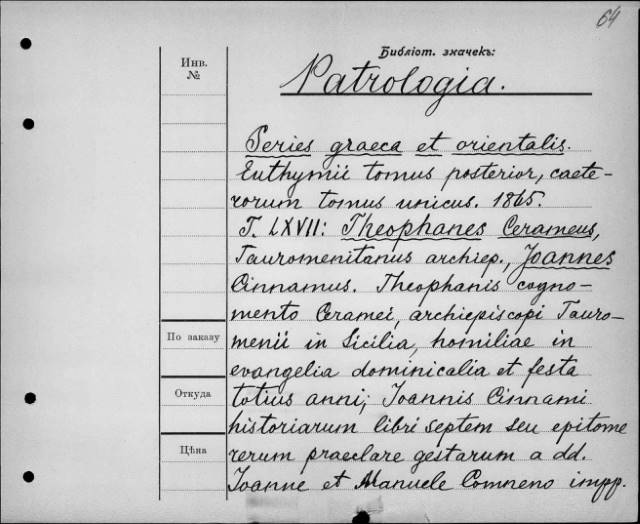 64
Библіот. значекъ:
Инв.
№
Patrologia.
Series graeca et orientalis.
Euthymii tomus posterior, caete-
rorum tomus unicus. 1865.
T. LXVII: Theophanes Cerameus,
Tauromenitanus archiep., Joannes
Cinnamus. Theophanis cogno-
mento Ceramei, archiepiscopi Tauro-
По заказу
menii in Sicilia, homiliae in
evangelia dominicalia et festa
Откуда
totius anni; Joannis Cinnami
historiarum libri septem seu epitome
Цѣна
rerum praeclare gestarum a dd.
Joanne et Manuele Comneno impp.